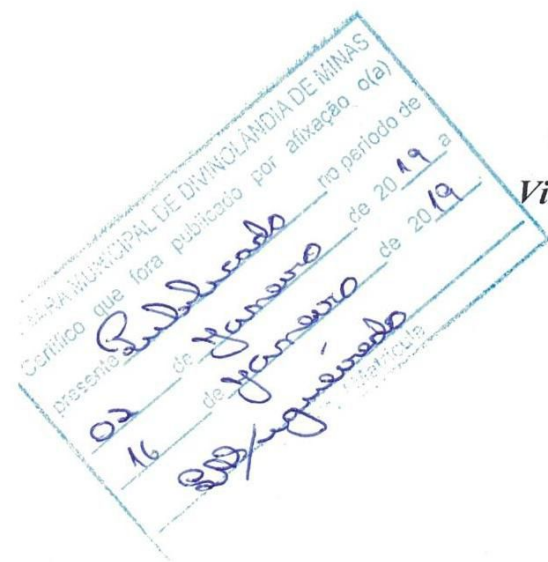 CÂMARA MUNICIPAL DE DIVINOLÂNDIA DE MINAS
Certifico que fora publicado por afixação o(a)
presente Publicado no período de
02 de janeiro de 2019 a
16 de janeiro de 2019
Matrícula
Vi